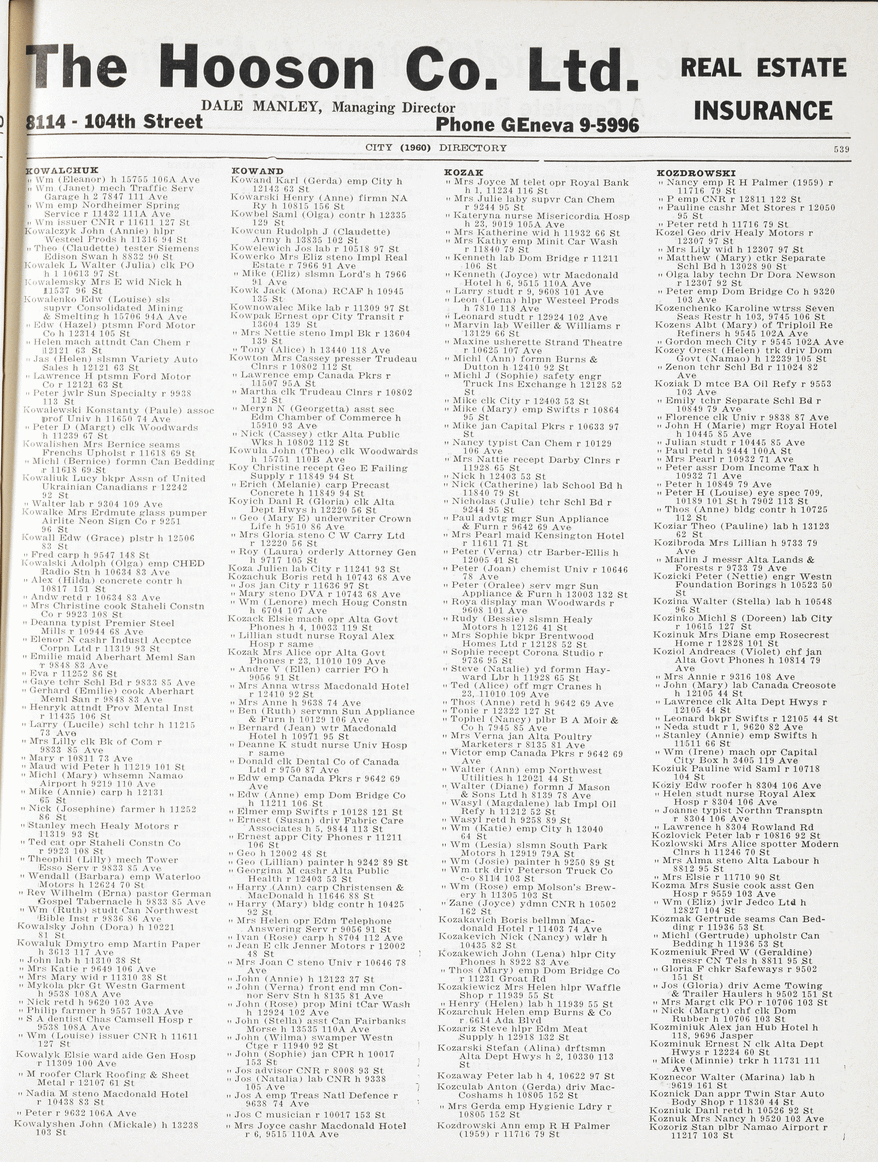 The Hooson Co. Ltd.
REAL ESTATE
INSURANCE
DALE MANLEY, Managing Director
8114 - 104th Street
Phone GEneva 9-5996
CITY (1960) DIRECTORY
539
KOWALCHUK
" Wm (Eleanor) h 15755 106A Ave
" Wm (Janet) mech Traffic Serv
Garage h 2 7847 111 Ave
" Wm emp Nordheimer Spring
Service r 11432 111A Ave
" Wm issuer CNR r 11611 127 St
Kowalczyk John (Annie) hlpr
Westeel Prods h 11316 94 St
" Theo (Claudette) tester Siemens
Edison Swan h 8832 90 St
Kowalek L Walter (Julia) clk PO
h 1 10613 97 St
Kowalemsky Mrs E wid Nick h
11537 96 St
Kowalenko Edw (Louise) sls
supvr Consolidated Mining
& Smelting h 15706 94A Ave
" Edw (Hazel) ptsmn Ford Motor
Co h 12314 105 St
" Helen mach attndt Can Chem r
12121 63 St
" Jas (Helen) slsmn Variety Auto
Sales h 12121 63 St
" Lawrence H ptsmn Ford Motor
Co r 12121 63 St
" Peter jwlr Sun Specialty r 9938
113 St
Kowalewski Konstanty (Paule) assoc
prof Univ h 11650 74 Ave
" Peter D (Margt) clk Woodwards
h 11239 67 St
Kowalishen Mrs Bernice seams
Frenchs Upholst r 11618 69 St
" Michl (Bernice) formn Can Bedding
r 11618 69 St
Kowaliuk Lucy bkpr Assn of United
Ukrainian Canadians r 12242
92 St
" Walter lab r 9304 109 Ave
Kowalke Mrs Erdmute glass pumper
Airlite Neon Sign Co r 9251
96 St
Kowall Edw (Grace) plstr h 12506
83 St
" Fred carp h 9547 148 St
Kowalski Adolph (Olga) emp CHED
Radio Stn h 10634 83 Ave
" Alex (Hilda) concrete contr h
10817 151 St
" Andw retd r 10634 83 Ave
" Mrs Christine cook Staheli Constn
Co r 9923 108 St
" Deanna typist Premier Steel
Mills r 10944 68 Ave
" Elenor N cashr Industl Accptce
Corpn Ltd r 11319 93 St
" Emilie maid Aberhart Meml San
r 9848 83 Ave
" Eva r 11252 86 St
" Gaye tchr Schl Bd r 9833 85 Ave
" Gerhard (Emilie) cook Aberhart
Meml San r 9848 83 Ave
" Henryk attndt Prov Mental Inst
r 11435 106 St
" Larry (Lucile) schl tchr h 11215
73 Ave
" Mrs Lilly clk Bk of Com r
9833 85 Ave
" Mary r 10811 73 Ave
" Maud wid Peter h 11219 101 St
" Michl (Mary) whsemn Namao
Airport h 9219 110 Ave
" Mike (Annie) carp h 12131
65 St
" Nick (Josephine) farmer h 11252
86 St
" Stanley mech Healy Motors r
11319 93 St
" Ted cat opr Staheli Constn Co
r 9923 108 St
" Theophil (Lilly) mech Tower
Esso Serv r 9833 85 Ave
" Wendall (Barbara) emp Waterloo
Motors h 12624 70 St
" Rev Wilhelm (Erna) pastor German
Gospel Tabernacle h 9833 85 Ave
" Wm (Ruth) studt Can Northwest
Bible Inst r 9836 86 Ave
Kowalsky John (Dora) h 10221
81 St
Kowaluk Dmytro emp Martin Paper
h 3613 117 Ave
" John lab h 11310 38 St
" Mrs Katie r 9649 106 Ave
" Mrs Mary wid r 11310 38 St
" Mykola pkr Gt Westn Garment
h 9538 108A Ave
" Nick retd h 9620 103 Ave
" Philip farmer h 9557 103A Ave
" S A dentist Chas Camsell Hosp r
9538 108A Ave
" Wm (Louise) issuer CNR h 11611
127 St
Kowalyk Elsie ward aide Gen Hosp
r 11309 100 Ave
" M roofer Clark Roofing & Sheet
Metal r 12107 61 St
" Nadia M steno Macdonald Hotel
r 10438 83 St
" Peter r 9632 106A Ave
Kowalyshen John (Mickale) h 13238
103 St
KOWAND
Kowand Karl (Gerda) emp City h
12143 63 St
Kowarski Henry (Anne) firmn NA
Ry h 10815 156 St
Kowbel Saml (Olga) contr h 12335
129 St
Kowcun Rudolph J (Claudette)
Army h 13835 102 St
Kowelewich Jos lab r 10518 97 St
Kowerko Mrs Eliz steno Impl Real
Estate r 7966 91 Ave
" Mike (Eliz) slsmn Lord's h 7966
91 Ave
Kowk Jack (Mona) RCAF h 10945
135 St
Kownowalec Mike lab r 11309 97 St
Kowpak Ernest opr City Transit r
13604 139 St
" Mrs Nettie steno Impl Bk r 13604
139 St
" Tony (Alice) h 13440 118 Ave
Kowton Mrs Cassey presser Trudeau
Clnrs r 10802 112 St
" Lawrence emp Canada Pkrs r
11507 95A St
" Martha clk Trudeau Clnrs r 10802
112 St
" Meryn N (Georgetta) asst sec
Edm Chamber of Commerce h
15910 93 Ave
" Nick (Cassey) ctkr Alta Public
Wks h 10802 112 St
Kowula John (Theo) clk Woodwards
h 15751 110B Ave
Koy Christine recept Geo E Failing
Supply r 11849 94 St
" Erich (Melanie) carp Precast
Concrete h 11849 94 St
Koyich Danl R (Gloria) clk Alta
Dept Hwys h 12220 56 St
" Geo (Mary E) underwriter Crown
Life h 9510 86 Ave
" Mrs Gloria steno C W Carry Ltd
r 12220 56 St
" Roy (Laura) orderly Attorney Gen
h 9717 105 St
Koza Julien lab City r 11241 93 St
Kozachuk Boris retd h 10743 68 Ave
" Jos jan City r 11636 97 St
" Mary steno DVA r 10743 68 Ave
" Wm (Lenore) mech Houg Constn
h 6704 107 Ave
Kozack Elsie mach opr Alta Govt
Phones h 4, 10033 119 St
" Lillian studt nurse Royal Alex
Hosp r same
Kozak Mrs Alice opr Alta Govt
Phones r 23, 11010 109 Ave
" Andre V (Ellen) carrier PO h
9056 91 St
" Mrs Anna wtrss Macdonald Hotel
r 12410 92 St
" Mrs Anne h 9638 74 Ave
" Ben (Ruth) servmn Sun Appliance
& Furn h 10129 106 Ave
" Bernard (Jean) wtr Macdonald
Hotel h 10971 95 St
" Deanne K studt nurse Univ Hosp
r same
" Donald clk Dental Co of Canada
Ltd r 9750 87 Ave
" Edw emp Canada Pkrs r 9642 69
Ave
" Edw (Anne) emp Dom Bridge Co
h 11211 106 St
" Elmer emp Swifts r 10128 121 St
" Ernest (Susan) driv Fabric Care
Associates h 5, 9844 113 St
" Ernest appr City Phones r 11211
106 St
" Geo h 12002 48 St
" Geo (Lillian) painter h 9242 89 St
" Georgina M cashr Alta Public
Health r 12403 53 St
" Harry (Ann) carp Christensen &
MacDonald h 11646 88 St
" Harry (Mary) bldg contr h 10425
92 St
" Mrs Helen opr Edm Telephone
Answering Serv r 9056 91 St
" Ivan (Rose) carp h 8704 112 Ave
" Jean E clk Jenner Motors r 12002
48 St
" Mrs Joan C steno Univ r 10646 78
Ave
" John (Annie) h 12123 37 St
" John (Verna) front end mn Con-
nor Serv Stn h 8135 81 Ave
" John (Rose) prop Mini tCar Wash
h 12924 102 Ave
" John (Stella) asst Can Fairbanks
Morse h 13535 110A Ave
" John (Wilma) swamper Westn
Ctge r 11940 92 St
" John (Sophie) jan CPR h 10017
153 St
" Jos advisor CNR r 8008 93 St
" Jos (Natalia) lab CNR h 9338
105 Ave
" Jos A emp Treas Natl Defence r
9638 74 Ave
" Jos C musician r 10017 153 St
" Mrs Joyce cashr Macdonald Hotel
r 6, 9515 110A Ave
KOZAK
" Mrs Joyce M telet opr Royal Bank
h 1, 11234 116 St
" Mrs Julie laby supvr Can Chem
r 9244 95 St
" Kateryna nurse Misericordia Hosp
h 23, 9019 105A Ave
" Mrs Katherine wid h 11932 66 St
" Mrs Kathy emp Minit Car Wash
r 11840 79 St
" Kenneth lab Dom Bridge r 11211
106 St
" Kenneth (Joyce) wtr Macdonald
Hotel h 6, 9515 110A Ave
" Larry studt r 9, 9608 101 Ave
" Leon (Lena) hlpr Westeel Prods
h 7810 118 Ave
" Leonard studt r 12924 102 Ave
" Marvin lab Weiller & Williams r
13129 66 St
" Maxine usherette Strand Theatre
r 10625 107 Ave
" Michl (Ann) formn Burns &
Dutton h 12410 92 St
" Michl J (Sophie) safety engr
Truck Ins Exchange h 12128 52
St
" Mike clk City r 12403 53 St
" Mike (Mary) emp Swifts r 10864
95 St
" Mike jan Capital Pkrs r 10633 97
St
" Nancy typist Can Chem r 10129
106 Ave
" Mrs Nattie recept Darby Clnrs r
11928 65 St
" Nick h 12403 53 St
" Nick (Catherine) lab School Bd h
11840 79 St
" Nicholas (Julie) tchr Schl Bd r
9244 95 St
" Paul advtg mgr Sun Appliance
& Furn r 9642 69 Ave
" Mrs Pearl maid Kensington Hotel
r 11611 71 St
" Peter (Verna) ctr Barber-Ellis h
12005 41 St
" Peter (Joan) chemist Univ r 10646
78 Ave
" Peter (Oralee) serv mgr Sun
Appliance & Furn h 13003 132 St
" Roya display man Woodwards r
9608 101 Ave
" Rudy (Bessie) slsmn Healy
Motors h 12126 41 St
" Mrs Sophie bkpr Brentwood
Homes Ltd r 12128 52 St
" Sophie recept Corona Studio r
9736 95 St
" Steve (Natalie) yd formn Hay-
ward Lbr h 11928 65 St
" Ted (Alice) off mgr Cranes h
23, 11010 109 Ave
" Thos (Anne) retd h 9642 69 Ave
" Tonie r 12322 127 St
" Tophel (Nancy) plbr B A Moir &
Co h 7945 85 Ave
" Mrs Verna jan Alta Poultry
Marketers r 8135 81 Ave
" Victor emp Canada Pkrs r 9642 69
Ave
" Walter (Ann) emp Northwest
Utilities h 12021 44 St
" Walter (Diane) formn J Mason
& Sons Ltd h 8139 78 Ave
" Wasyl (Magdalene) lab Impl Oil
Refy h 11212 52 St
" Wasyl retd r 9258 89 St
" Wm (Katie) emp City h 13040
64 St
" Wm (Lesia) slsmn South Park
Motors h 12919 79A St
" Wm (Josie) painter r 9250 89 St
" Wm trk driv Peterson Truck Co
c-o 8114 103 St
" Wm (Rose) emp Molson's Brew-
ery h 11305 103 St
" Zane (Joyce) ydmn CNR h 10502
162 St
Kozakavich Boris bellmn Mac-
donald Hotel r 11403 74 Ave
Kozakevich Nick (Nancy) wldr h
10435 82 St
Kozakewich John (Lena) hlpr City
Phones h 8922 83 Ave
" Thos (Mary) emp Dom Bridge Co
r 11231 Groat Rd
Kozakiewicz Mrs Helen hlpr Waffle
Shop r 11939 55 St
" Henry (Helen) lab h 11939 55 St
Kozarchuk Helen emp Burns & Co
r 6614 Ada Blvd
Kozariz Steve hlpr Edm Meat
Supply h 12918 132 St
Kozarski Stefan (Alina) drftsmn
Alta Dept Hwys h 2, 10330 113
St
Kozaway Peter lab h 4, 10622 97 St
Kozculab Anton (Gerda) driv Mac-
Coshams h 10805 152 St
" Mrs Gerda emp Hygienic Ldry r
10805 152 St
Kozdrowski Ann emp R H Palmer
(1959) r 11716 79 St
KOZDROWSKI
" Nancy emp R H Palmer (1959) r
11716 79 St
" P emp CNR r 12811 122 St
" Pauline cashr Met Stores r 12050
95 St
" Peter retd h 11716 79 St
Kozel Geo driv Healy Motors r
12307 97 St
" Mrs Lily wid h 12307 97 St
" Matthew (Mary) ctkr Separate
Schl Bd h 13028 90 St
" Olga laby techn Dr Dora Newson
r 12307 92 St
" Peter emp Dom Bridge Co h 9320
103 Ave
Kozenchenko Karoline wtrss Seven
Seas Restr h 103, 9745 106 St
Kozens Albt (Mary) of Triploil Re
Refiners h 9545 102A Ave
" Gordon mech City r 9545 102A Ave
Kozey Orest (Helen) trk driv Dom
Govt (Namao) h 12239 105 St
" Zenon tchr Schl Bd r 11024 82
Ave
Koziak D mtce BA Oil Refy r 9553
103 Ave
" Emily tchr Separate Schl Bd r
10849 79 Ave
" Florence clk Univ r 9838 87 Ave
" John H (Marie) mgr Royal Hotel
h 10445 85 Ave
" Julian studt r 10445 85 Ave
" Paul retd h 9444 100A St
" Mrs Pearl r 10932 71 Ave
" Peter assr Dom Income Tax h
10932 71 Ave
" Peter h 10849 79 Ave
" Peter H (Louise) eye spec 709,
10189 101 St h 7902 113 St
" Thos (Anne) bldg contr h 10725
112 St
Koziar Theo (Pauline) lab h 13123
62 St
Kozibroda Mrs Lillian h 9733 79
Ave
" Marlin J messr Alta Lands &
Forests r 9733 79 Ave
Kozicki Peter (Nettie) engr Westn
Foundation Borings h 10523 50
St
Kozina Walter (Stella) lab h 10548
96 St
Kozinko Michl S (Doreen) lab City
r 10615 127 St
Kozinuk Mrs Diane emp Rosecrest
Home r 12828 111 St
Koziol Andreacs (Violet) chf jan
Alta Govt Phones h 10814 79
Ave
" Mrs Annie r 9316 108 Ave
" John (Mary) lab Canada Creosote
h 12105 44 St
" Lawrence clk Alta Dept Hwys r
12105 44 St
" Leonard bkpr Swifts r 12105 44 St
" Neda studt r 1, 9620 82 Ave
" Stanley (Annie) emp Swifts h
11511 66 St
" Wm (Irene) mach opr Capital
City Box h 3405 119 Ave
Koziuk Pauline wid Saml r 10718
104 St
Koziy Edw roofer h 8304 106 Ave
" Helen studt nurse Royal Alex
Hosp r 8304 106 Ave
" Joanne typist Northn Transptn
r 8304 106 Ave
" Lawrence h 8304 Rowland Rd
Kozlovick Peter lab r 10816 92 St
Kozlowski Mrs Alice spotter Modern
Clnrs h 11246 70 St
" Mrs Alma steno Alta Labour h
8812 95 St
" Mrs Elsie r 11710 90 St
Kozma Mrs Susie cook asst Gen
Hosp r 9559 103 Ave
" Wm (Eliz) jwlr Jedco Ltd h
12827 104 St
Kozmak Gertrude seams Can Bed-
ding r 11936 53 St
" Michl (Gertrude) upholstr Can
Bedding h 11936 53 St
Kozmeniuk Fred W (Geraldine)
messr CN Tels h 8811 95 St
" Gloria F chkr Safeways r 9502
151 St
" Jos (Gloria) driv Acme Towing
& Trailer Haulers h 9502 151 St
" Mrs Margt clk PO r 10706 103 St
" Nick (Margt) chf clk Dom
Rubber h 10706 103 St
Kozminiuk Alex jan Hub Hotel h
118, 9696 Jasper
Kozminiuk Ernest N clk Alta Dept
Hwys r 12224 60 St
" Mike (Minnie) trkr h 11731 111
Ave
Koznecor Walter (Marina) lab h
9619 161 St
Koznick Dan appr Twin Star Auto
Body Shop r 11830 44 St
Kozniuk Danl retd h 10526 92 St
Koznuk Mrs Nancy h 9520 103 Ave
Kozoriz Stan plbr Namao Airport r
11217 103 St